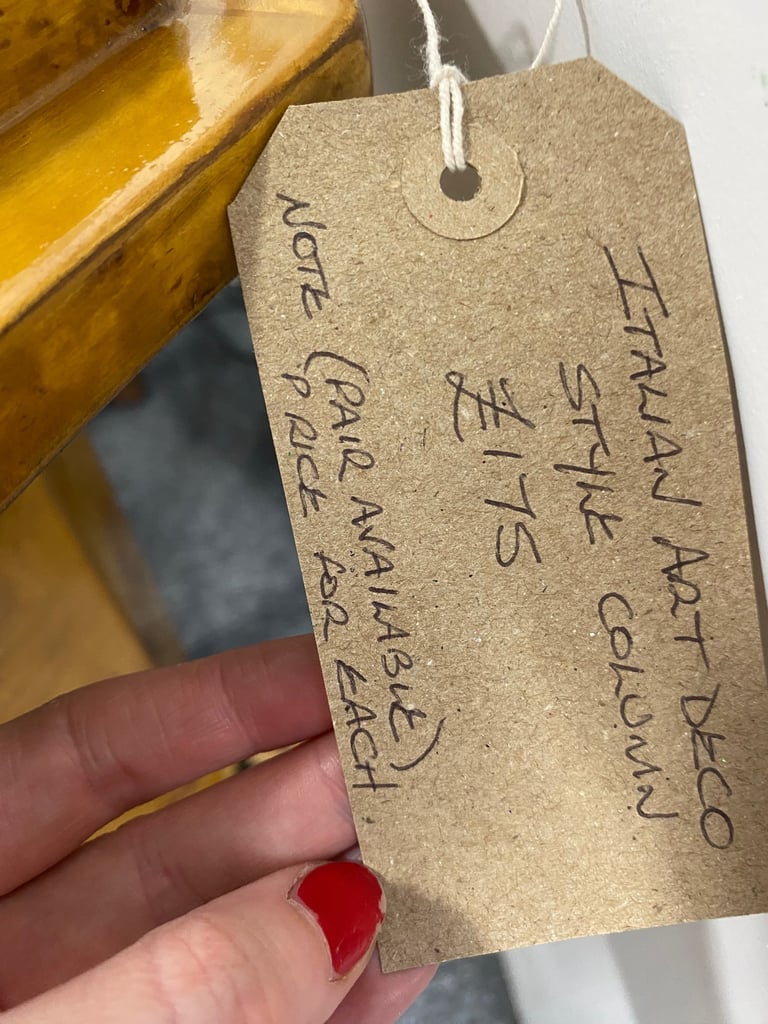 ITALIAN ART DECO
STYLE COLUMN
£175
NOTE (PAIR AVAILABLE)
PRICE FOR EACH.